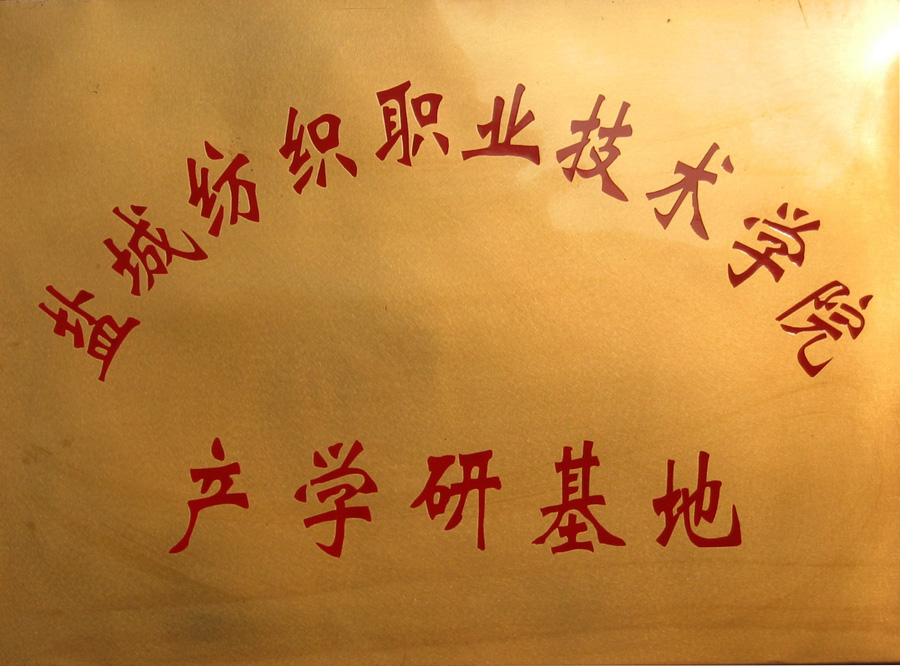 盐城纺织职业技术学院
产学研基地